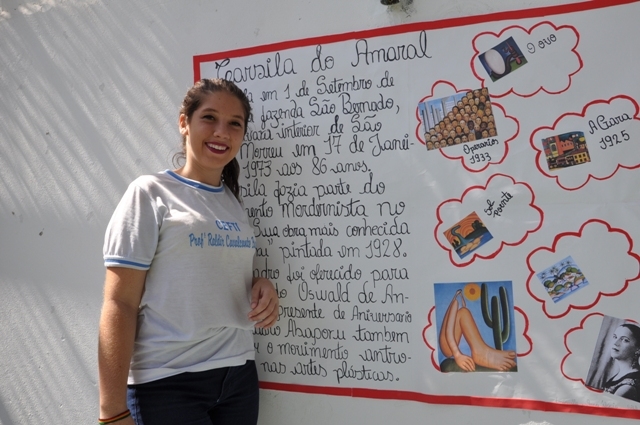 Tarsila do Amaral
em 1 de Setembro de
fazenda São Bernado,
interior de São
Morreu em 17 de Janei-
1973 aos 86 anos.
sila fazia parte do
mento Mordernista no
Sua obra mais conhecida
" pintada em 1928.
adro foi oferecido para
Oswald de An-
presente de Aniversario
Abaporu tambem
o movimento antro-
nas artes plásticas.
O ovo
Operarios
1933
A Gara
1925
Sol
Poente
CZPTI
Profª